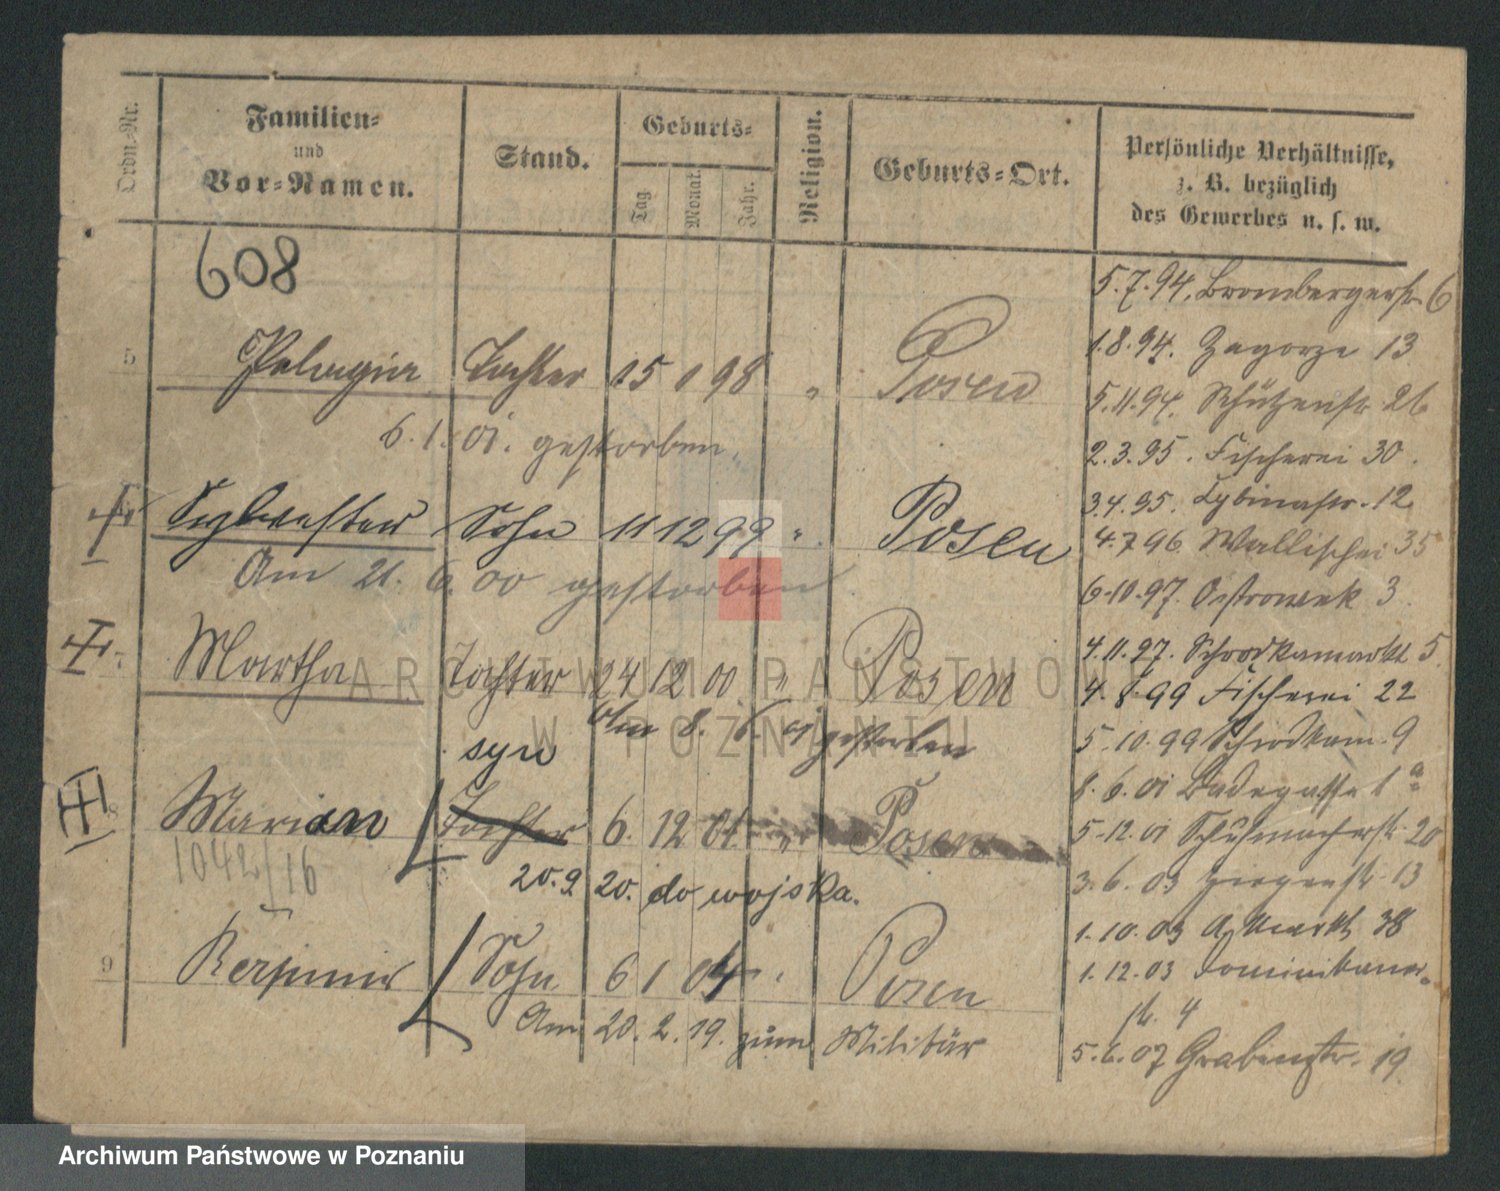 Ordn.-Nr.
Familien-
und
Vor-Namen.
Stand.
Geburts-
Tag.
Monat.
Jahr.
Religion.
Geburts-Ort.
Persönliche Verhältnisse,
z. B. bezüglich
des Gewerbes u. s. w.
608
5.7.94. Brombergerstr. 6
1.8.94. Zagorze 13
5 Pelagia Tochter 15 1 98 " Posen
5.11.94. Schützenstr 26
6. 1. 01. gestorben.
2.3.95. Fischerei 30.
3.4.95. Cybinastr. 12
Sylvester Sohn 11 12 99 " Posen
4.7.96. Wallischei 35
Am 21. 6. 00 gestorben
6.10.97. Ostrowek 3
4.11.97. Schrodkamarkt 5
Martha Tochter 24 12 00 " Posen
4.8.99 Fischerei 22
Am 8. 6. 01 gestorben
5.10.99 Schrodkam. 9
syn
8.6.01 Badegasse 1a
8 Marian Tochter 6. 12 01. " Posen
5.12.01 Schuhmacherstr. 20
1042/16
20.9. 20. do wojska.
3.6.03 Ziegenstr. 13
1.10.03 A. Markt 38
9 Sohn 6 1 04 " Posen
1.12.03 Dominikaner-
str. 4
Am 20. 2. 19. zum Militär
5.6.07 Grabenstr. 19
ARCHIWUM PAŃSTWOWE
W POZNANIU
Archiwum Państwowe w Poznaniu